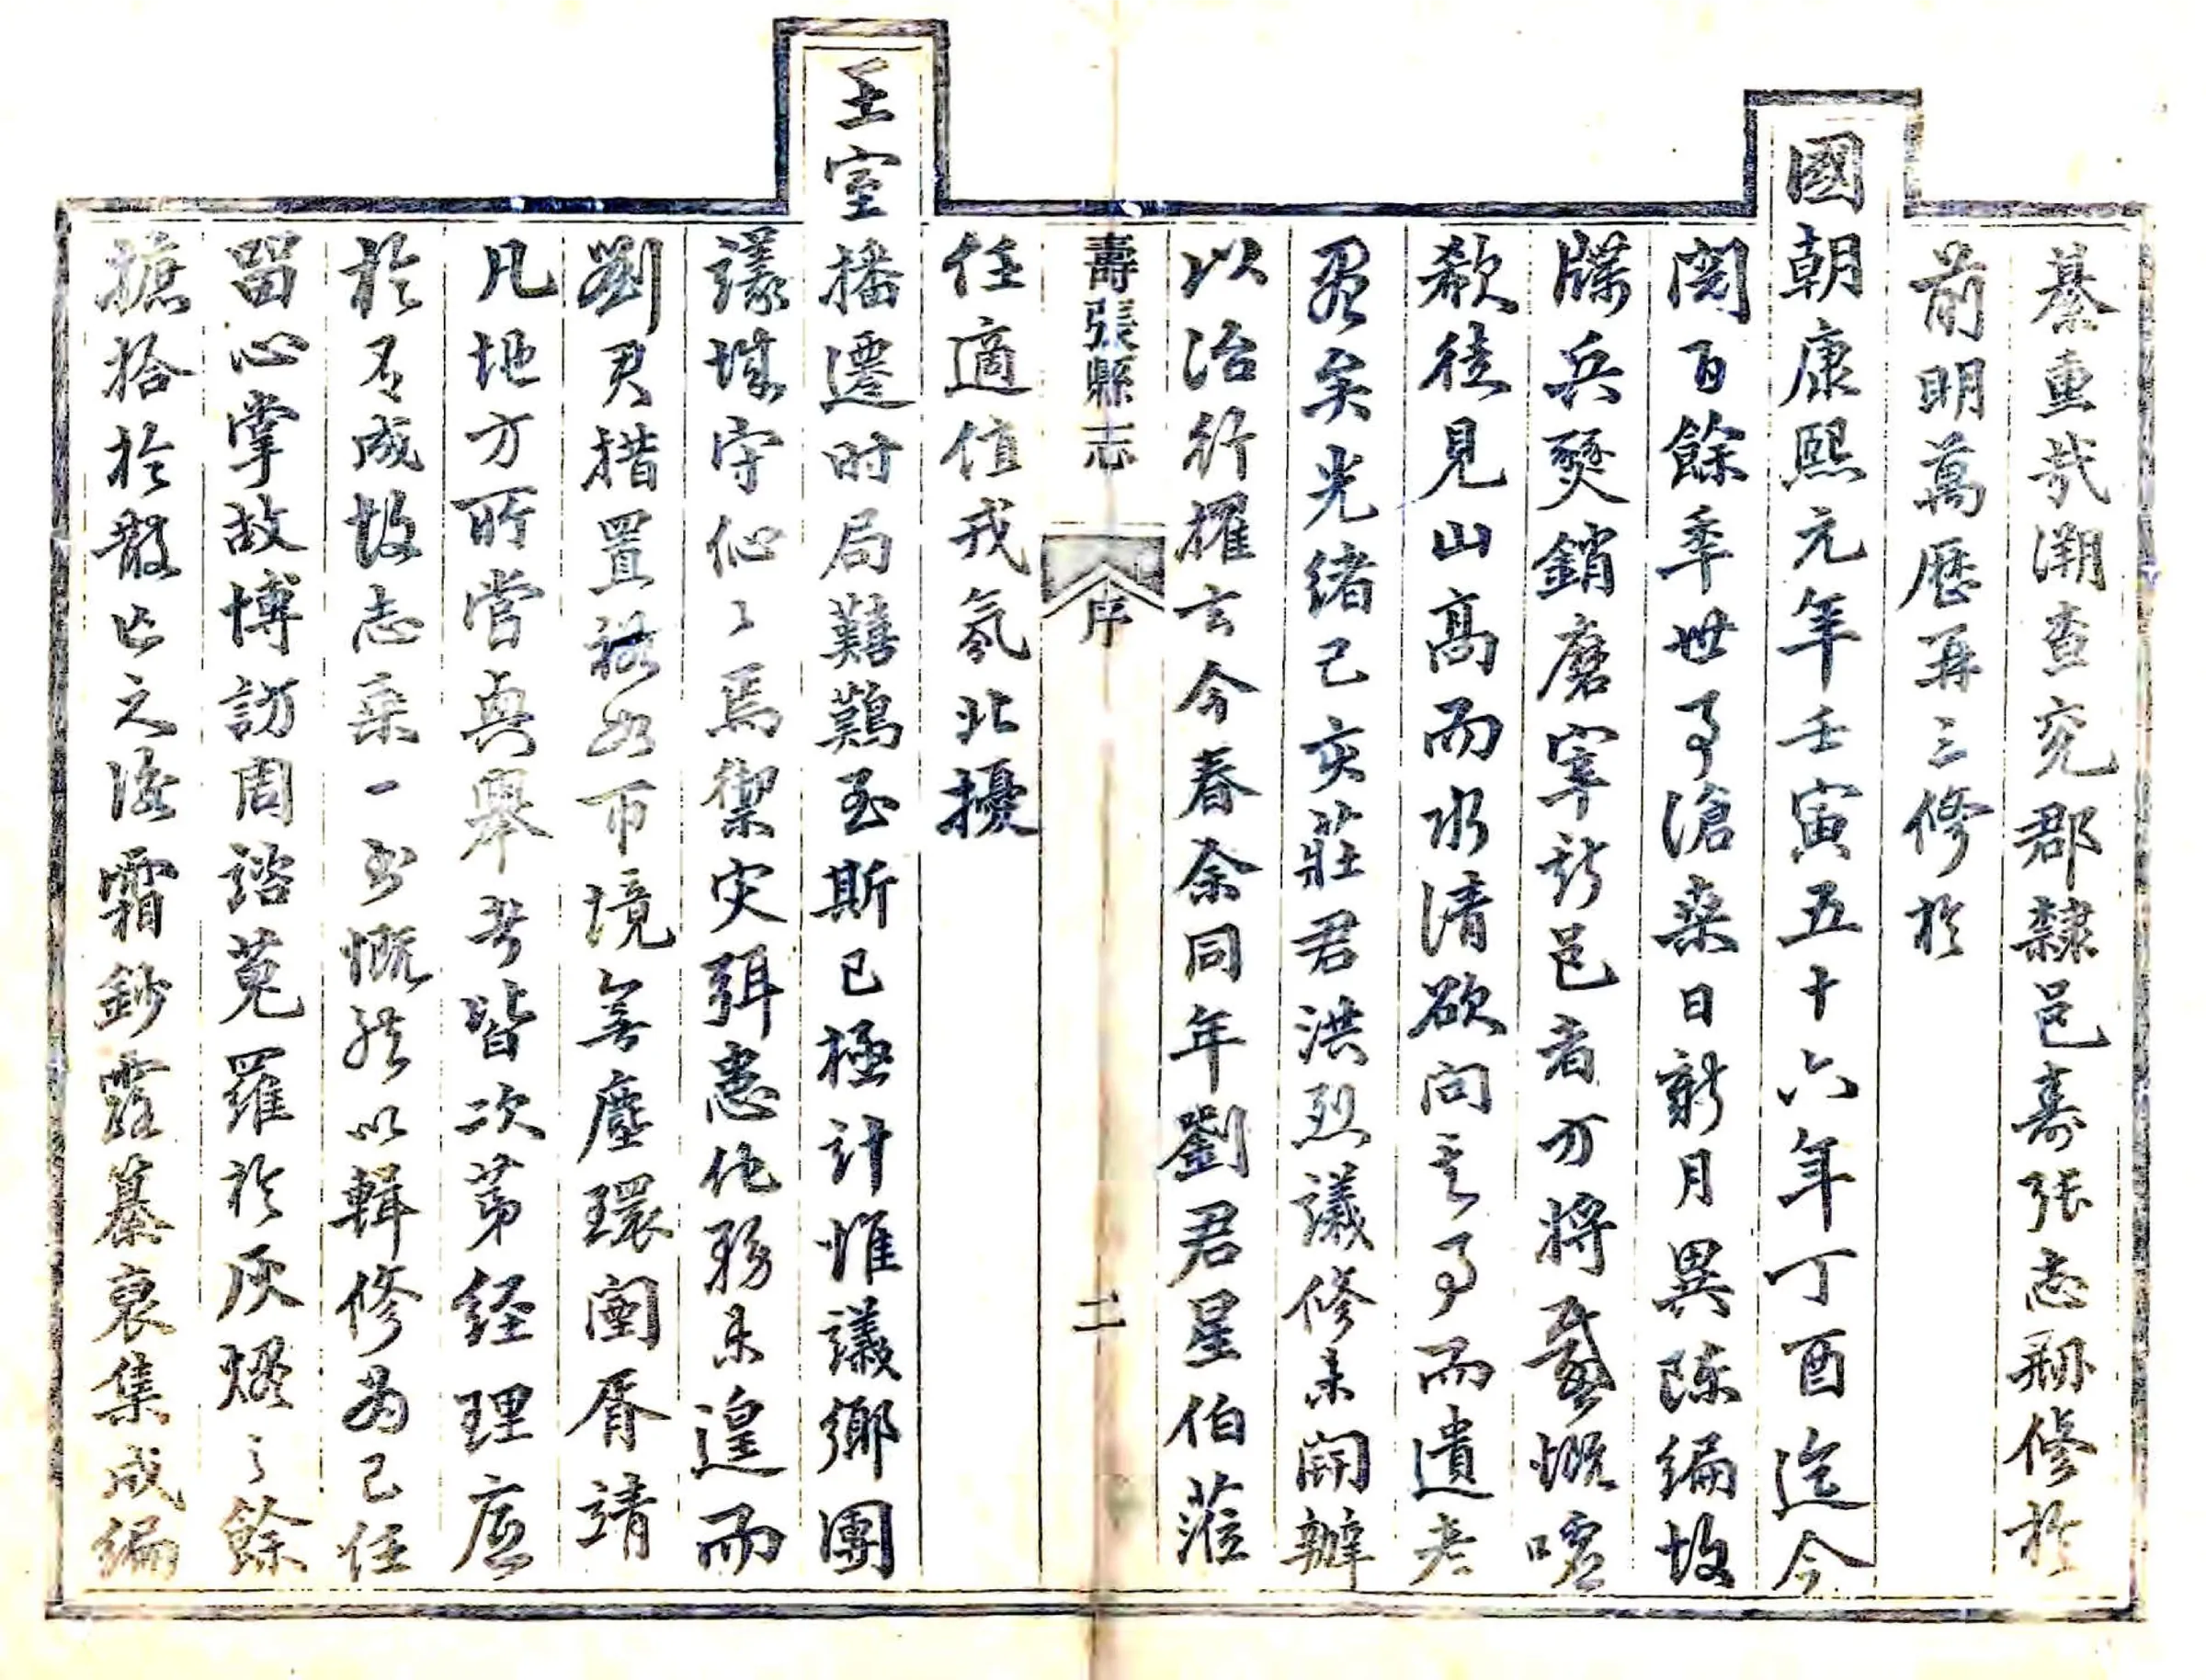 綦重哉溯查兗郡隸邑壽張志冊修於
前明萬歷再三修於
國朝康熙元年壬寅五十六年丁酉迄今
閱百餘年世事滄桑日新月異陳編故
牒兵燹銷磨宰斯邑者方將感慨嘘
欷徒見山高而水清欲問其事而遺老
盡矣光緒己亥莊君洪烈議修未開辦
以治行擢去今春余同年劉君星伯蒞
壽張縣志
序
二
任適值戎氛北擾
王室播遷時局艱難至斯已極計惟議鄉團
議城守似似焉禦灾弭患他務未遑而
劉君措置裕如市境無塵環闠胥靖
凡地方所當興舉者皆次第經理廑
於有成故志乘一書慨然以輯修為己任
留心掌故博訪周諮蒐羅於灰燼之餘
摭拾於散亡之後霜鈔露纂裒集成編